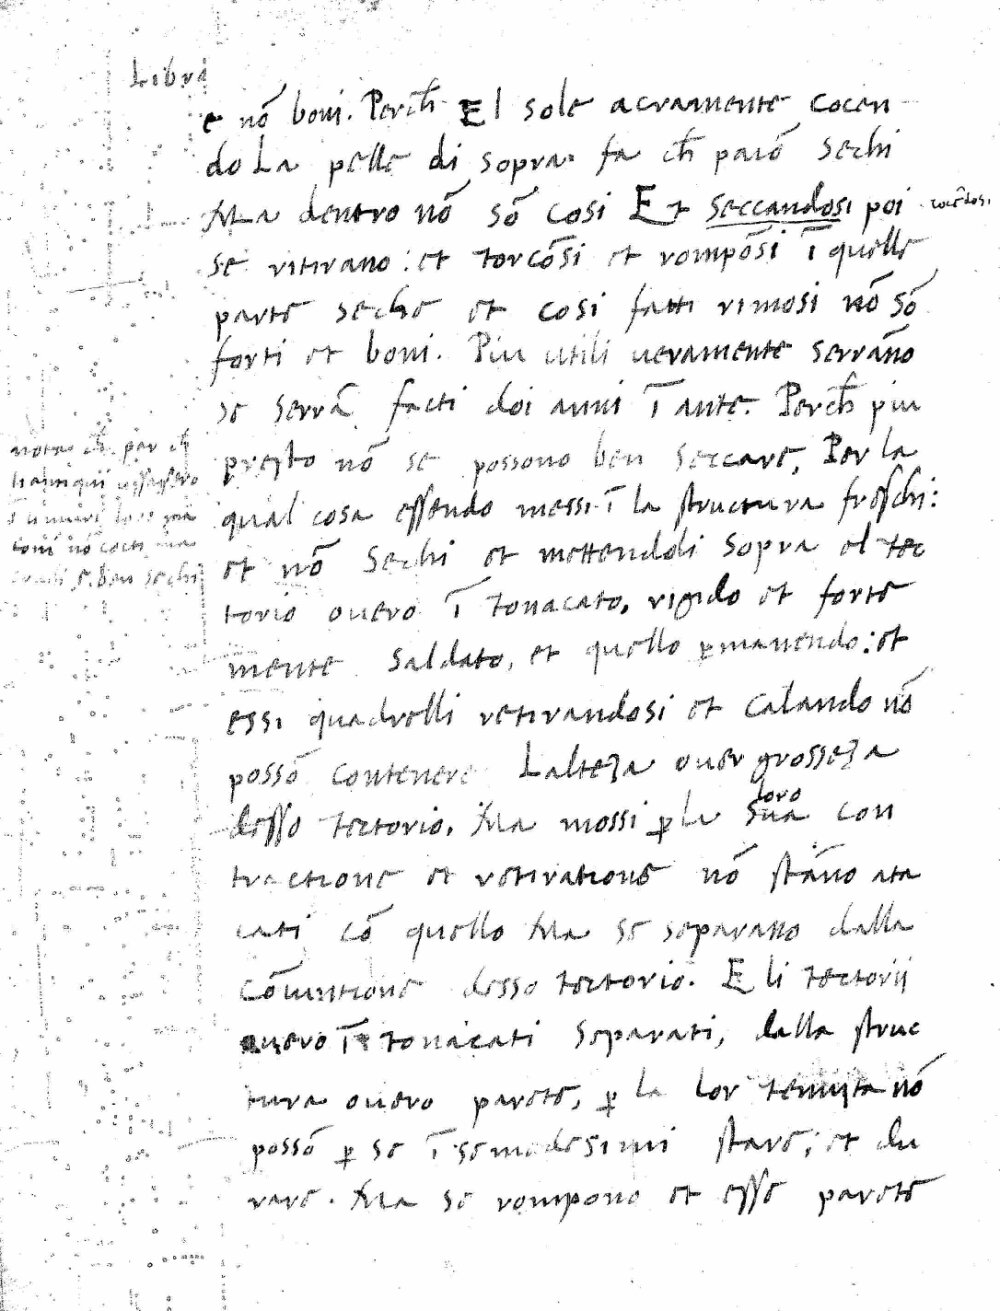 Libra
e nō boni. Perch̄ El sole acramente cocen
do La pelle di sopra fa ch̄ parō sechi
Ma dentro nō sō cosi Et seccandosi poi
se ritirano: et torcōsi et rompōsi ī quelle
parte seche et cosi fatti rimosi nō sō
forti et boni. Piu utili ueramente serrāno
se serrā facti doi anni ī ante. Perch̄ piu
presto nō se possono ben seccare, Per la
qual cosa essendo messi ī la structura freschi:
et nō sechi et mettendoli sopra el tec
torio ouero ī tonacato, rigido et forte
mente saldato, et quello ꝑmanendo: et
essi quadrelli retirandosi et calando nō
possō contenere Lalteza ouer grosseza
desso tectorio, Ma mossi ꝑ la sua loro con
tractione et retiratione nō stāno ata
cati cō quello Ma se separano dalla
cōiuntione desso tectorio. E li tectorij
ouero ī tonacati separati, dalla struc
tura ouero parete, ꝑ la lor tenuita nō
possō ꝑ se ī semedesimi stare; et du
rare. Ma se rompono et esse parete
nota ch̄ par ch̄
li antiqui usassero
tōni nō cocti ma
crudi e ben sechi